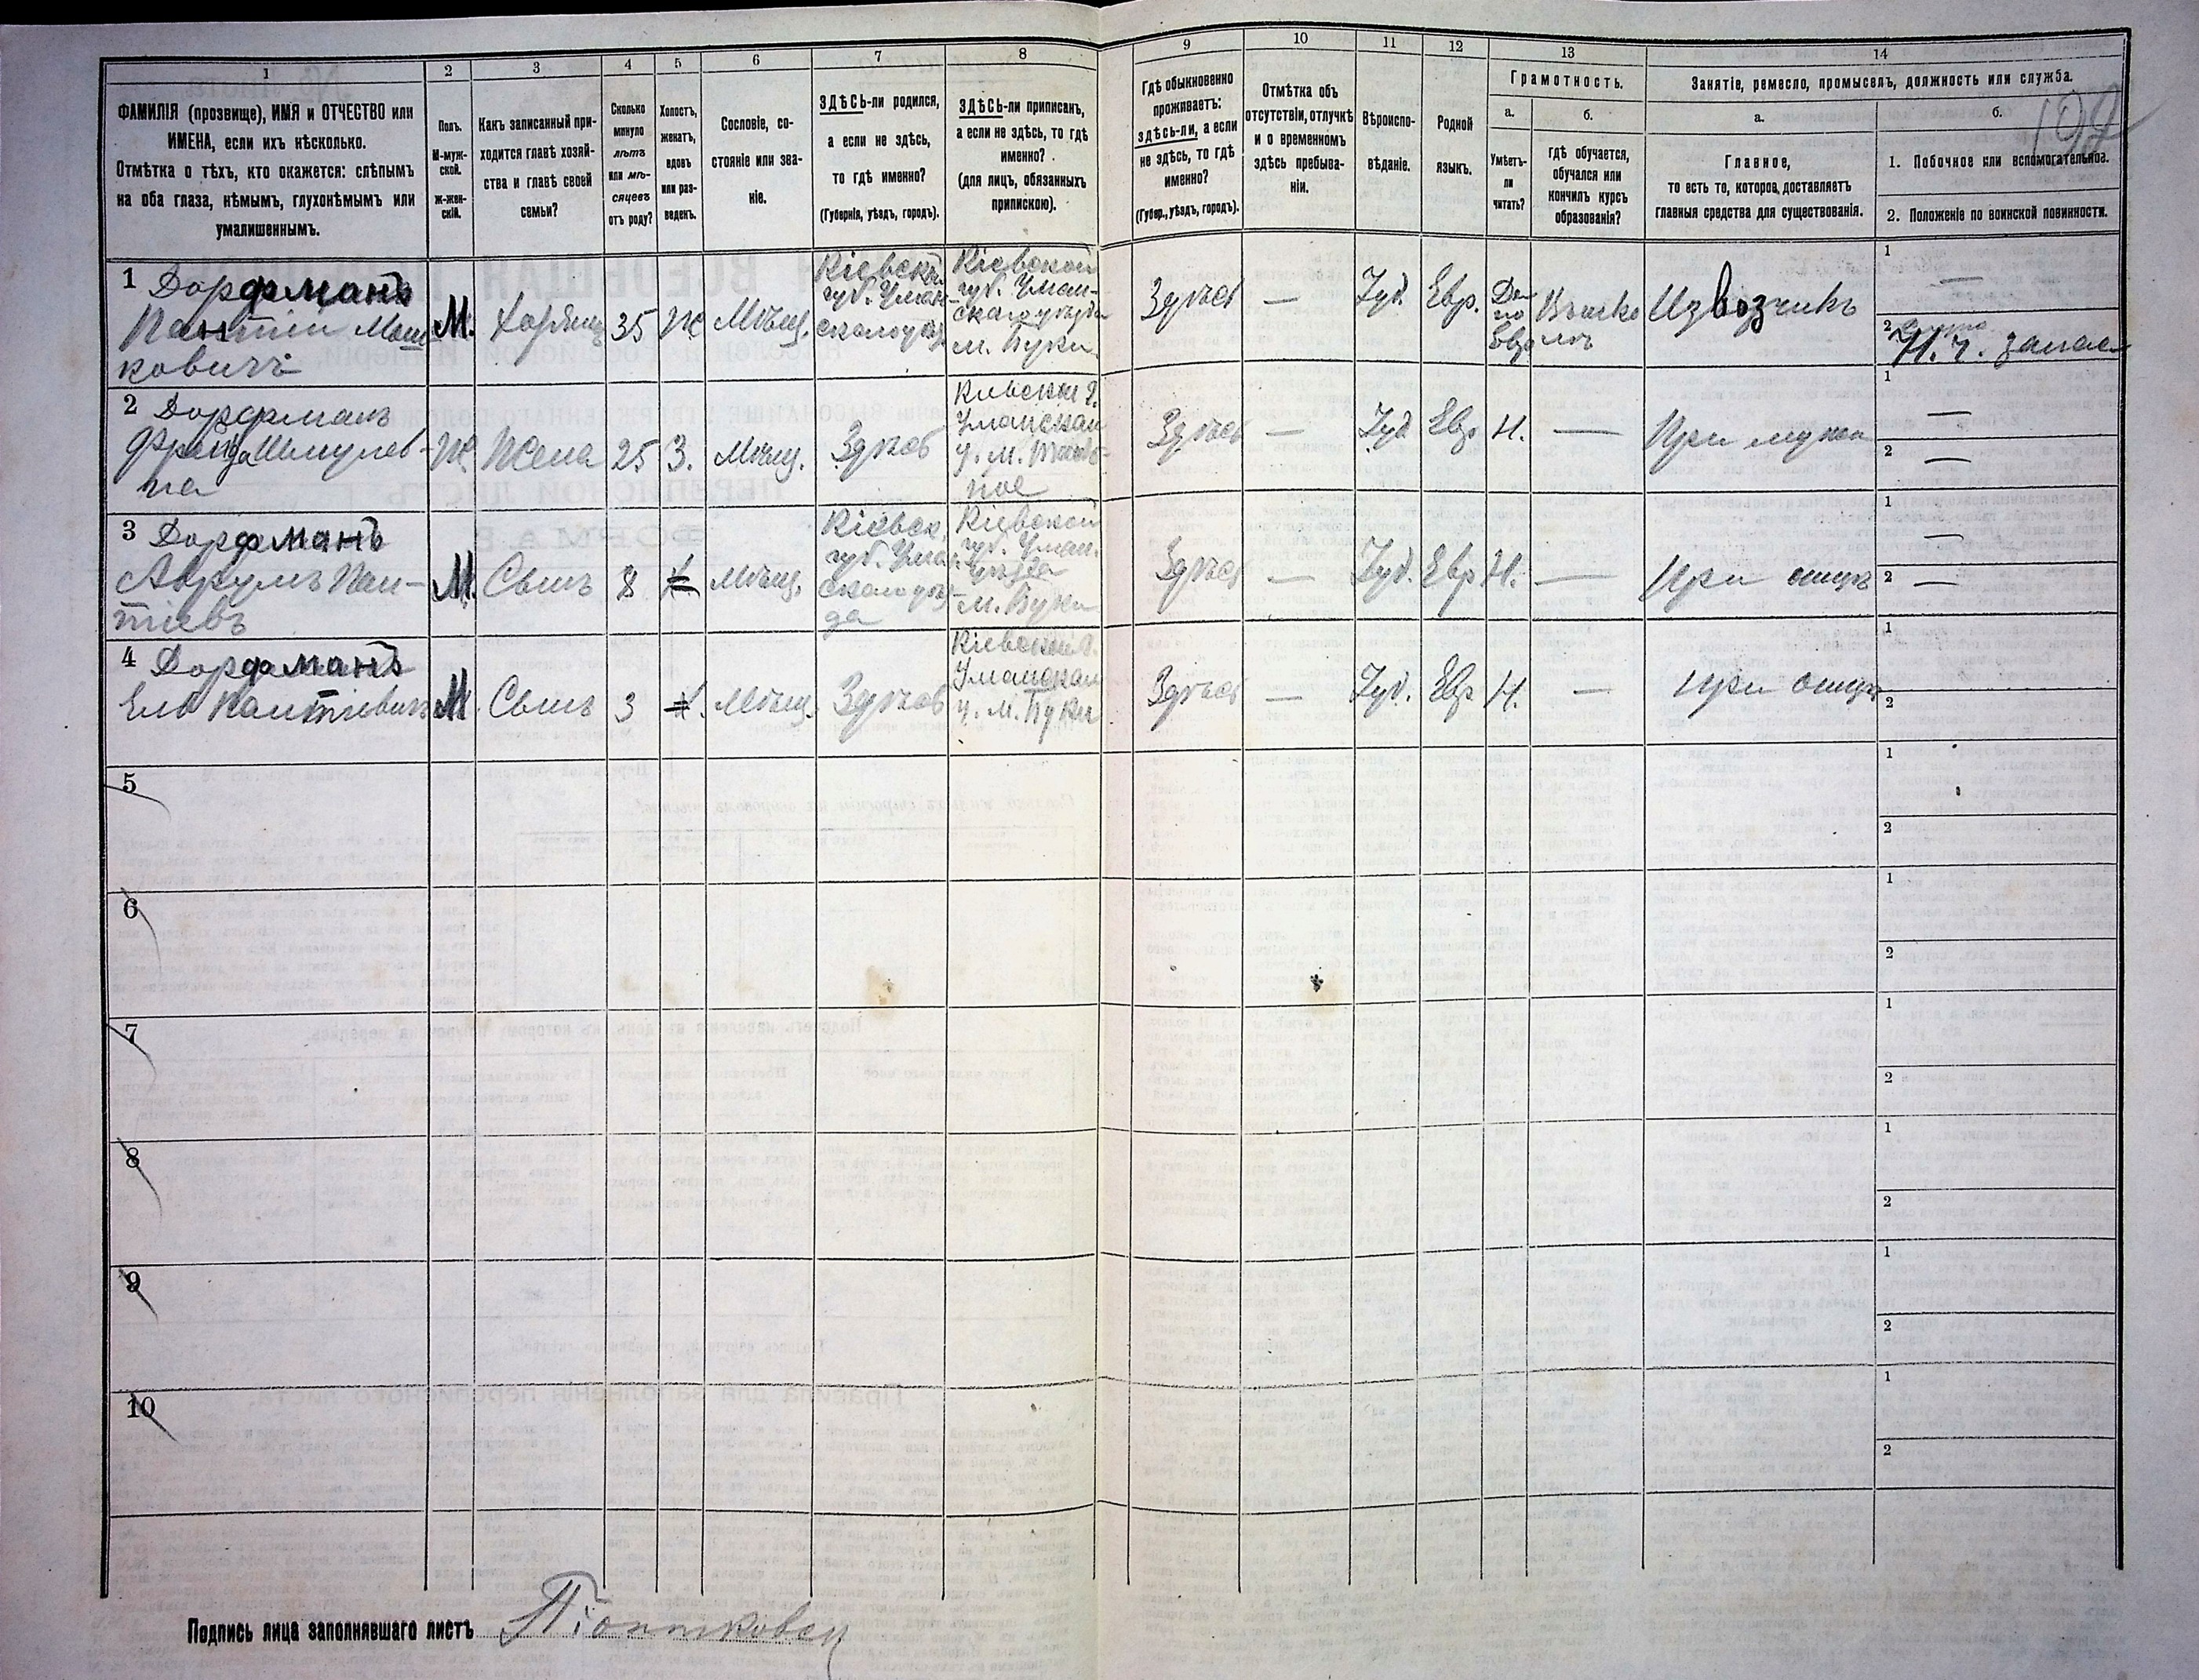 1 2 3 4 5 6 7 8 9 10 11 12 13 14
ФАМИЛІЯ (прозвище), ИМЯ и ОТЧЕСТВО или
ИМЕНА, если ихъ нѣсколько.
Отмѣтка о тѣхъ, кто окажется: слѣпымъ
на оба глаза, нѣмымъ, глухонѣмымъ или
умалишеннымъ.
Полъ.
М-муж-
ской.
ж-жен-
скій.
Какъ записанный при-
ходится главѣ хозяй-
ства и главѣ своей
семьи?
Сколько
минуло
лѣтъ
или мѣ-
сяцевъ
отъ роду?
Холостъ,
женатъ,
вдовъ
или раз-
веденъ.
Сословіе, со-
стояніе или зва-
ніе.
ЗДѢСЬ-ли родился,
а если не здѣсь,
то гдѣ именно?
(Губернія, уѣздъ, городъ).
ЗДѢСЬ-ли приписанъ,
а если не здѣсь, то гдѣ
именно?
(для лицъ, обязанныхъ
припискою).
Гдѣ обыкновенно
проживаетъ:
здѣсь-ли, а если
не здѣсь, то гдѣ
именно?
(Губер., уѣздъ, городъ).
Отмѣтка объ
отсутствіи, отлучкѣ
и о временномъ
здѣсь пребыва-
ніи.
Вѣроиспо-
вѣданіе.
Родной
языкъ.
Грамотность.
а.
Умѣетъ-
ли
читать?
б.
гдѣ обучается,
обучался или
кончилъ курсъ
образованія?
Занятіе, ремесло, промыселъ, должность или служба.
а.
Главное,
то есть то, которое доставляетъ
главныя средства для существованія.
б.
1. Побочное или вспомогательное.
2. Положеніе по воинской повинности.
1 Дорфманъ
ковичъ
М.
35
Ж
Мѣщ.
Кіевск.
губ. Уман-
Кіевской
губ. Уман-
скаго уѣзда
м. Буки
Здѣсь
—
Іуд.
Евр.
Да
по
Евр
Извозчикъ
1 —
2 запас
2 Дорфманъ
Шмулев-
на
Ж
Жена
25
З.
Мѣщ.
Здѣсь
Кіевской г.
Уманскаго
Здѣсь
—
Іуд
Евр
Н.
—
При мужѣ
1 —
2 —
3 Дорфманъ
Аврумъ Пан-
тіевъ
М.
Сынъ
8
Х
Мѣщ.
Кіевск.
губ. Уман-
скаго уѣз-
да
Кіевской
губ. Уман.
уѣзда
м. Буки
Здѣсь
—
Іуд.
Евр
Н.
—
При отцѣ
1 —
2 —
4 Дорфманъ
М
Сынъ
3
Х.
Мѣщ.
Здѣсь
Кіевской г.
Уманскаго
у. м. Буки
Здѣсь
—
Іуд.
Евр
Н.
—
При отцѣ
1
2
5
1
2
6
1
2
7
1
2
8
1
2
9
1
2
10
1
2
Подпись лица заполнявшаго листъ